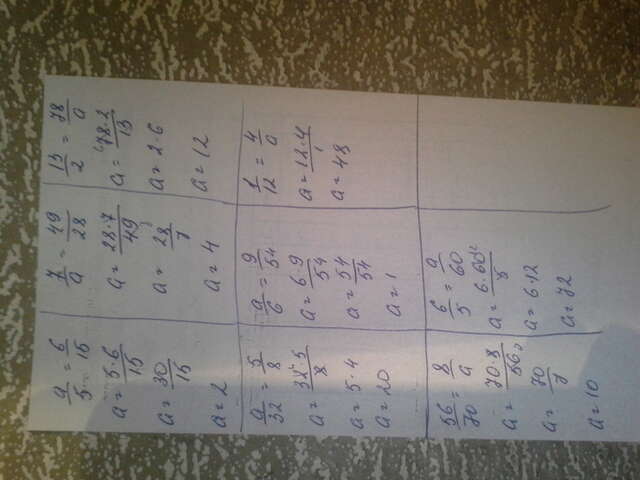 a/5 = 6/15
a = 5·6/15
a = 30/15
a = 2
7/a = 49/28
a = 28·7/49
a = 28/7
a = 4
13/2 = 78/a
a = 78·2/13
a = 2·6
a = 12
a/32 = 5/8
a = 32·5/8
a = 5·4
a = 20
a/6 = 9/54
a = 6·9/54
a = 54/54
a = 1
1/12 = 4/a
a = 12·4/1
a = 48
56/70 = 8/a
a = 70·8/56
a = 70/7
a = 10
6/5 = a/60
a = 6·60/5
a = 6·12
a = 72